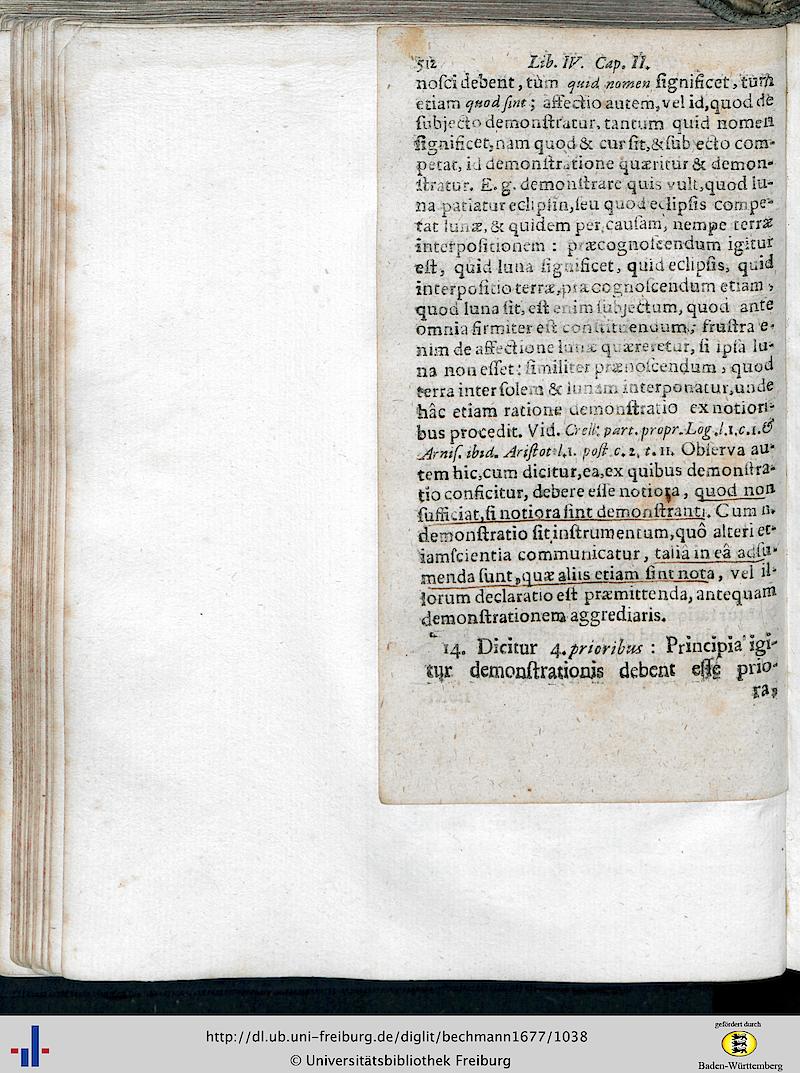 512 Lib. IV. Cap. II.
noſci debent, tùm quid nomen ſignificet, tùm
etiam quod ſint; affectio autem, vel id, quod de
ſubjecto demonſtratur, tantum quid nomen
ſignificet, nam quod & cur ſit, & ſubjecto com-
petat, id demonſtratione quæritur & demon-
ſtratur. E. g. demonſtrare quis vult, quod lu-
na patiatur eclipſin, ſeu quod eclipſis compe-
tat lunæ, & quidem per cauſam, nempe terræ
interpoſitionem : præcognoſcendum igitur
eſt, quid luna ſignificet, quid eclipſis, quid
interpoſitio terræ, præcognoſcendum etiam,
quod luna ſit, eſt enim ſubjectum, quod ante
omnia firmiter eſt conſtituendum; fruſtra e-
nim de affectione lunæ quæreretur, ſi ipſa lu-
na non eſſet: ſimiliter prænoſcendum, quod
terra inter ſolem & lunam interponatur, unde
hâc etiam ratione demonſtratio ex notiori-
bus procedit. Vid. Crell: part. propr. Log. l.1.c.1. &
Arniſ. ibid. Ariſtot. l.1. poſt. c. 2, t. 11. Obſerva au-
tem hic, cum dicitur, ea, ex quibus demonſtra-
tio conficitur, debere eſſe notiora, quod non
ſufficiat, ſi notiora ſint demonſtranti. Cum n.
demonſtratio ſit inſtrumentum, quô alteri et-
iam ſcientia communicatur, talia in eâ adſu-
menda ſunt, quæ aliis etiam ſint nota, vel il-
lorum declaratio eſt præmittenda, antequam
demonſtrationem aggrediaris.
14. Dicitur 4. prioribus : Principia igi-
tur demonſtrationis debent eſſe prio-
ra,
http://dl.ub.uni-freiburg.de/diglit/bechmann1677/1038
© Universitätsbibliothek Freiburg
gefördert durch
Baden-Württemberg